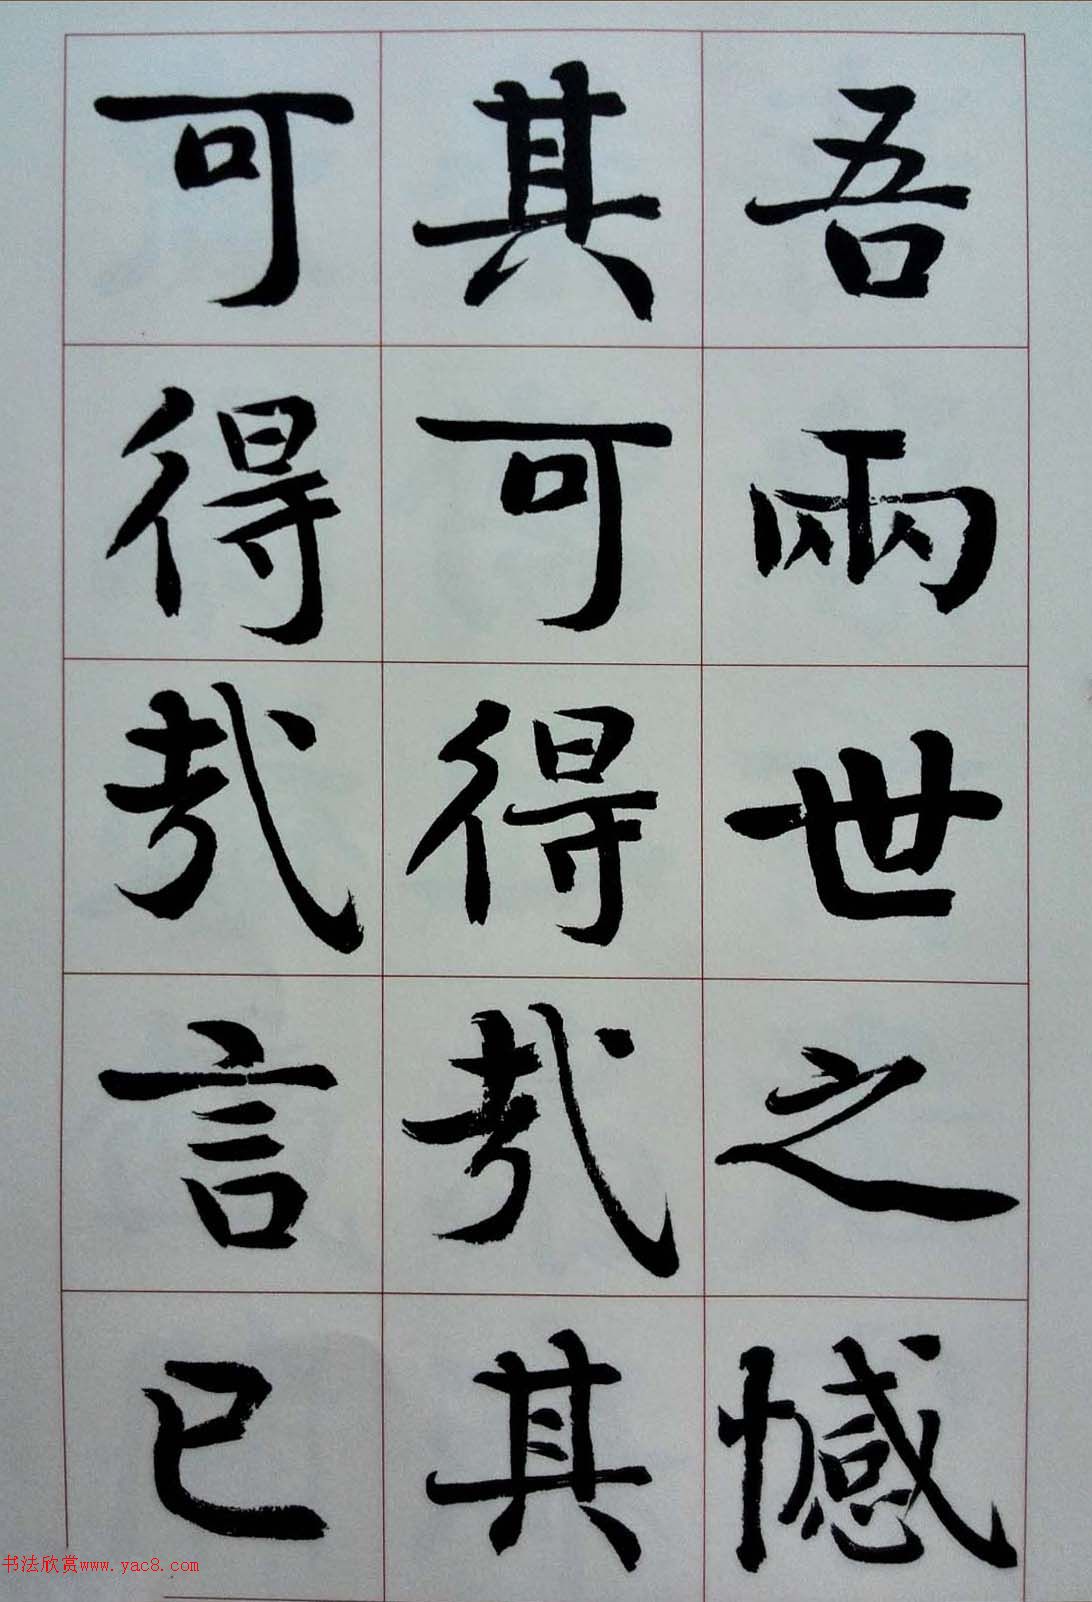 吾兩世之憾
其可得哉其
可得哉言已
书法欣赏www.yac8.com